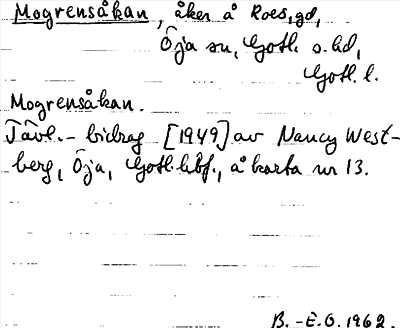 Mogrensåkan, åker å Roes, gd,
Öja sn, Gotl. s. hd,
Gotl. l.
Mogrensåkan.
Tävl.-bidrag [1949] av Nancy West-
berg, Öja, Gotl. hbf., å karta nr 13.
B.-E.O. 1962.